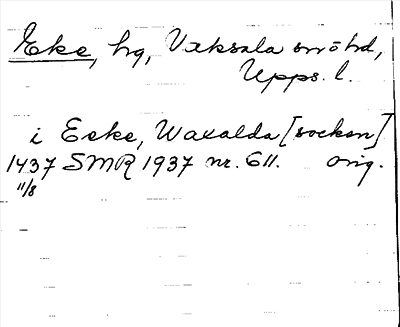 Eke, hg, Vaksala snöhd,
Upps. l.
i Eeke, Waxalda [socken]
1437 SMR 1937 nr. 611. orig.
11/8